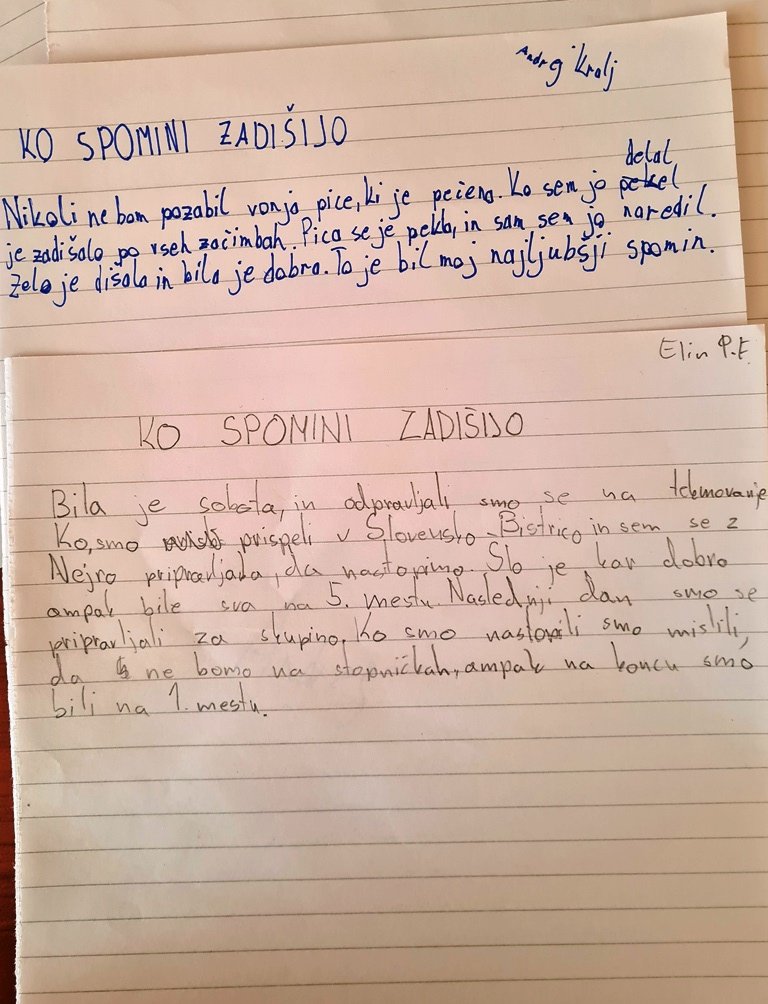 Andrej Kralj
KO SPOMINI ZADIŠIJO
delal
Nikoli ne bom pozabil vonja pice, ki je pečena. Ko sem jo
je zadišalo po vseh začimbah. Pica se je pekla, in sam sem jo naredil.
Zelo je dišala in bila je dobra. To je bil moj najljubšji spomin.
Elin P.E
KO SPOMINI ZADIŠIJO
Bila je sobota, in odpravljali smo se na tekmovanje
Ko, smo prispeli v Slovensko Bistrico in sem se z
Nejro pripravljala, da nastopimo. Šlo je kar dobro
ampak bile sva na 5. mestu. Naslednji dan smo se
pripravljali za skupino. Ko smo nastopili smo mislili,
da ne bomo na stopničkah, ampak na koncu smo
bili na 1. mestu.